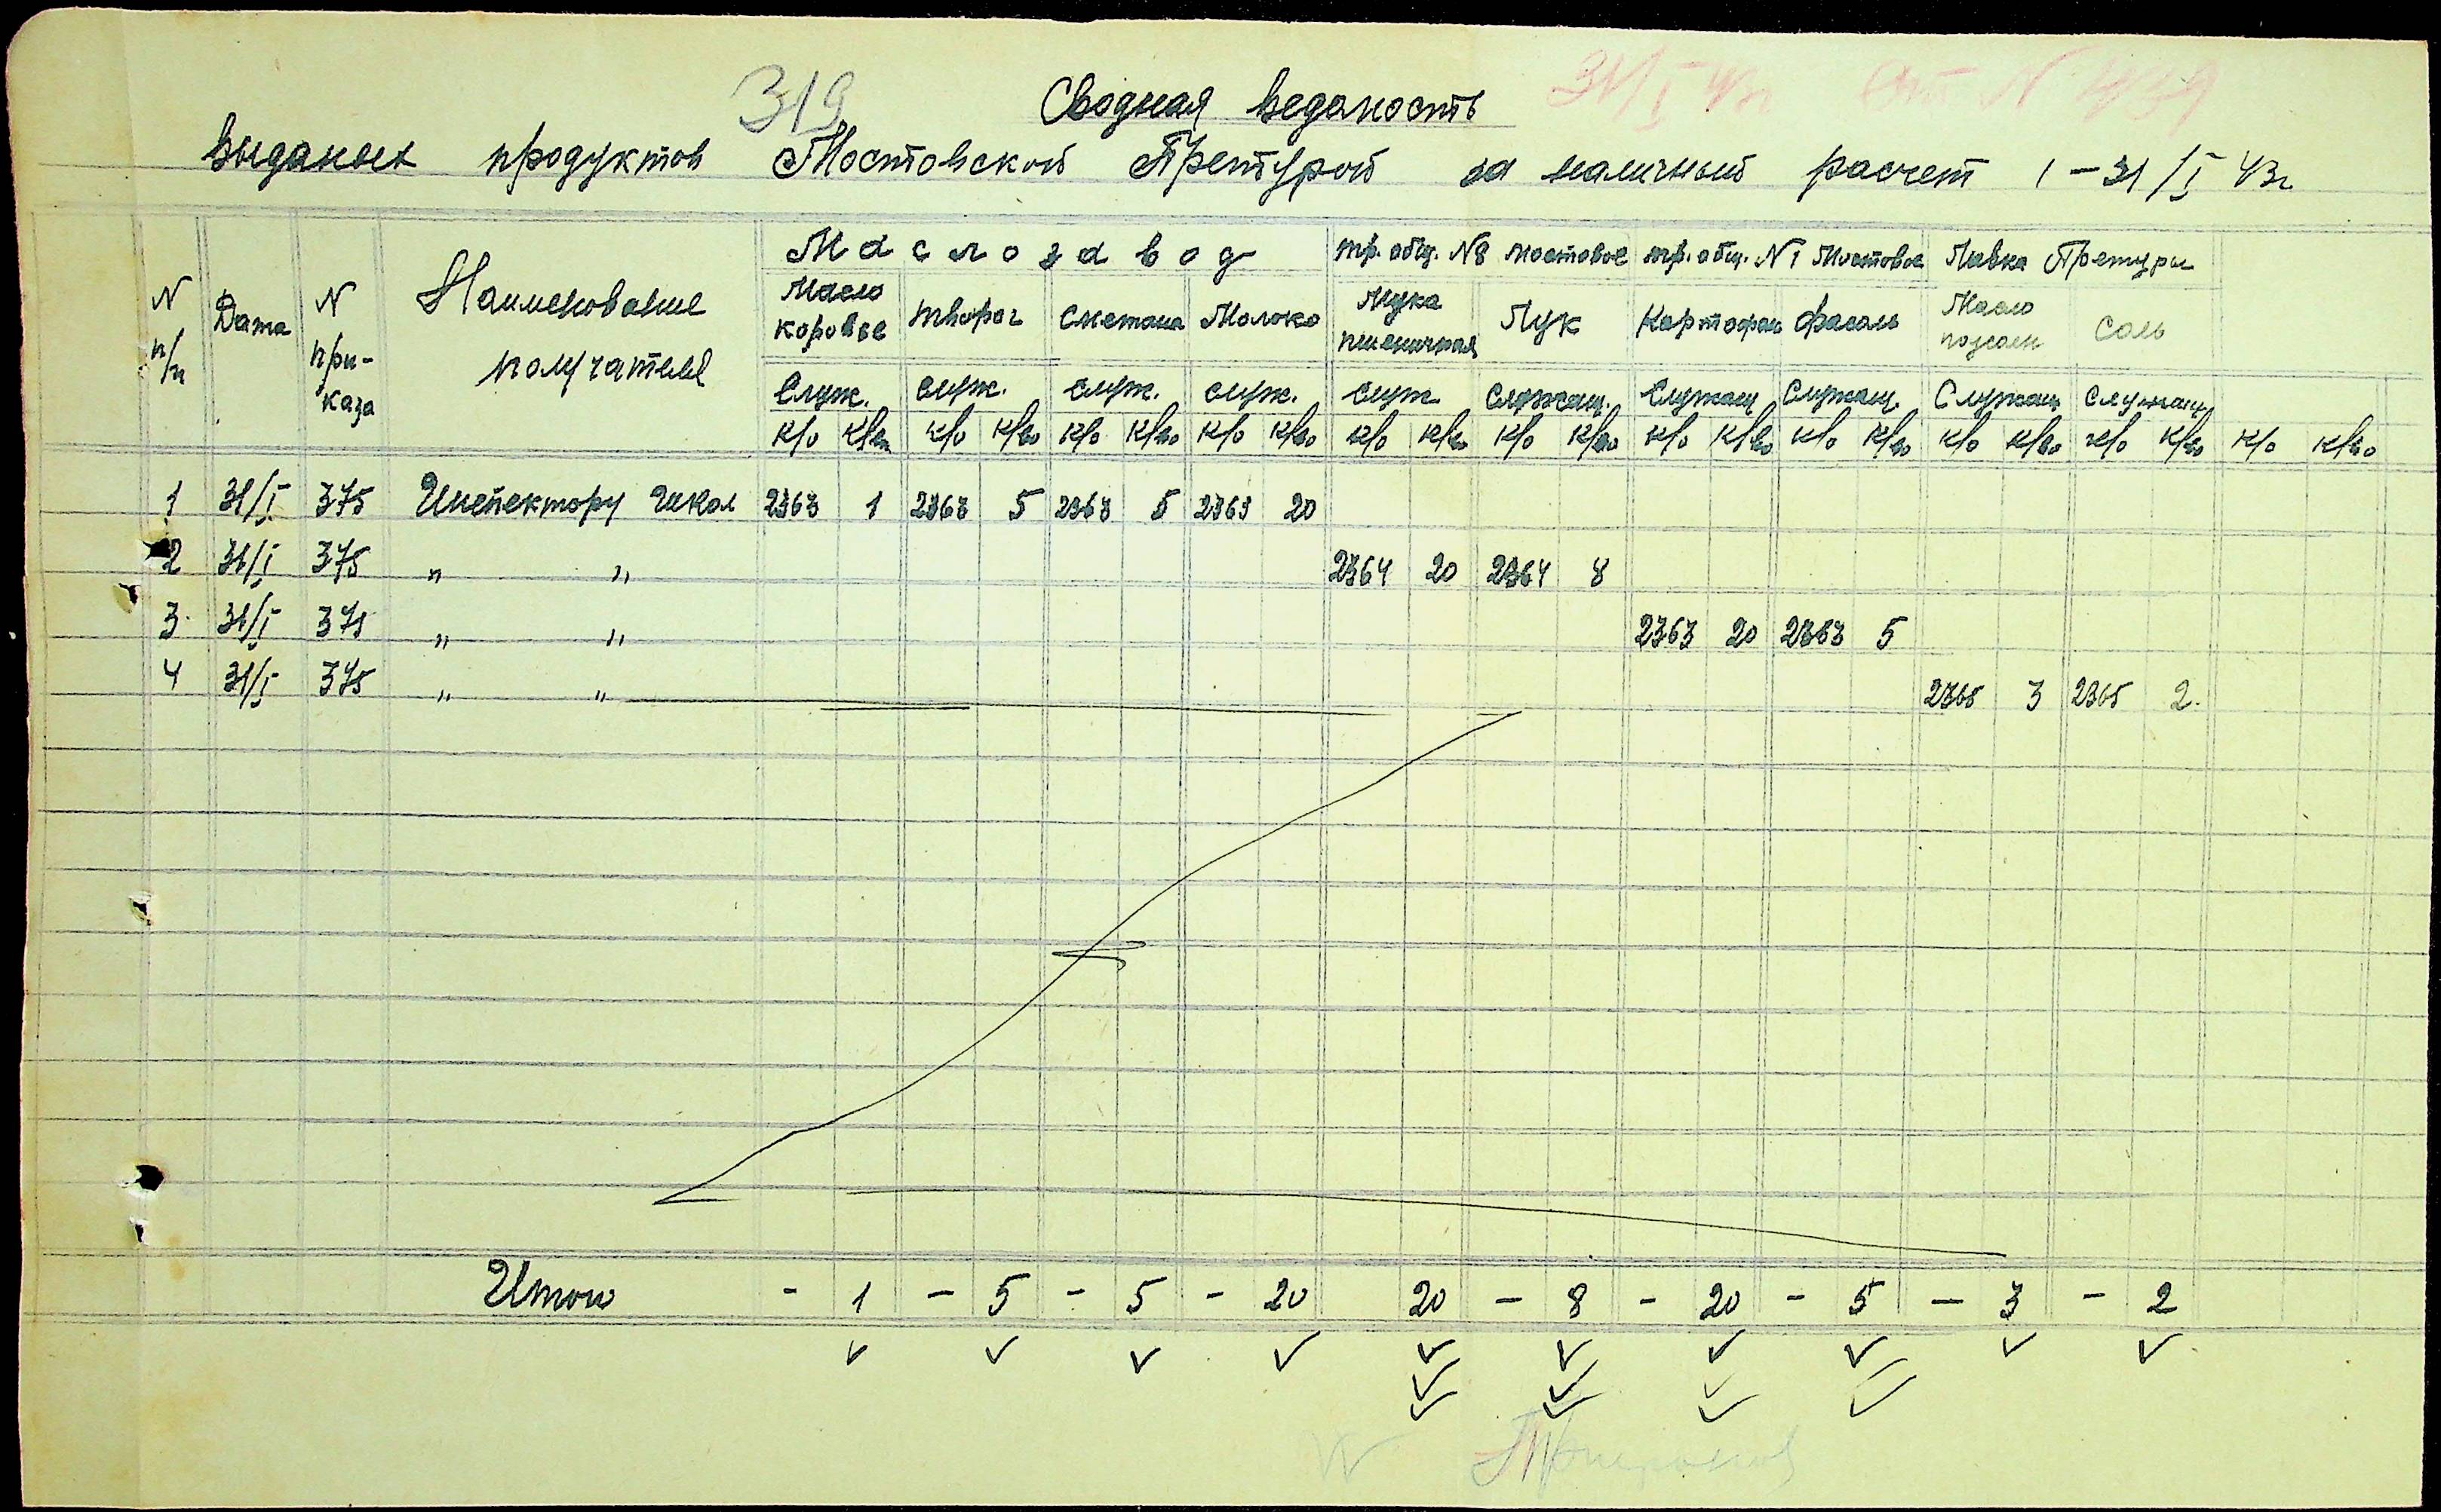 319
Сводная ведамость
выданых продуктов Мостовской Претурой за наличный расчет 1-31/I 43г
N п/п
Дата
N при-каза
Наименование получателей
Маслозавод
тр. общ. N8 Мостовое
тр. общ. N1 Мостовое
Лавка Претуры
Масло коровье
творог
сметана
Молоко
Мука пшеничная
Лук
Картофель
фасоль
Масло
соль
Служ. служ. служ. служ. служ Служащ. Служащ Служащ. Служащ Служащ
к/о к/во к/о к/во к/о к/во к/о к/во к/о к/во к/о к/во к/о к/во к/о к/во к/о к/во к/о к/во к/о к/во
1 31/I 375 Инспектору Школ 2363 1 2363 5 2363 5 2363 20
2 31/I 375 " " 2364 20 2364 8
3 31/I 375 " " 2363 20 2363 5
4 31/I 375 " " 2365 3 2365 2.
Итого - 1 - 5 - 5 - 20 20 - 8 - 20 - 5 - 3 - 2